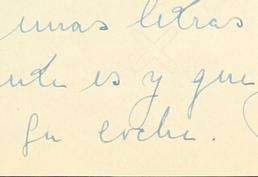 unas letras
nte es y que
su coche.